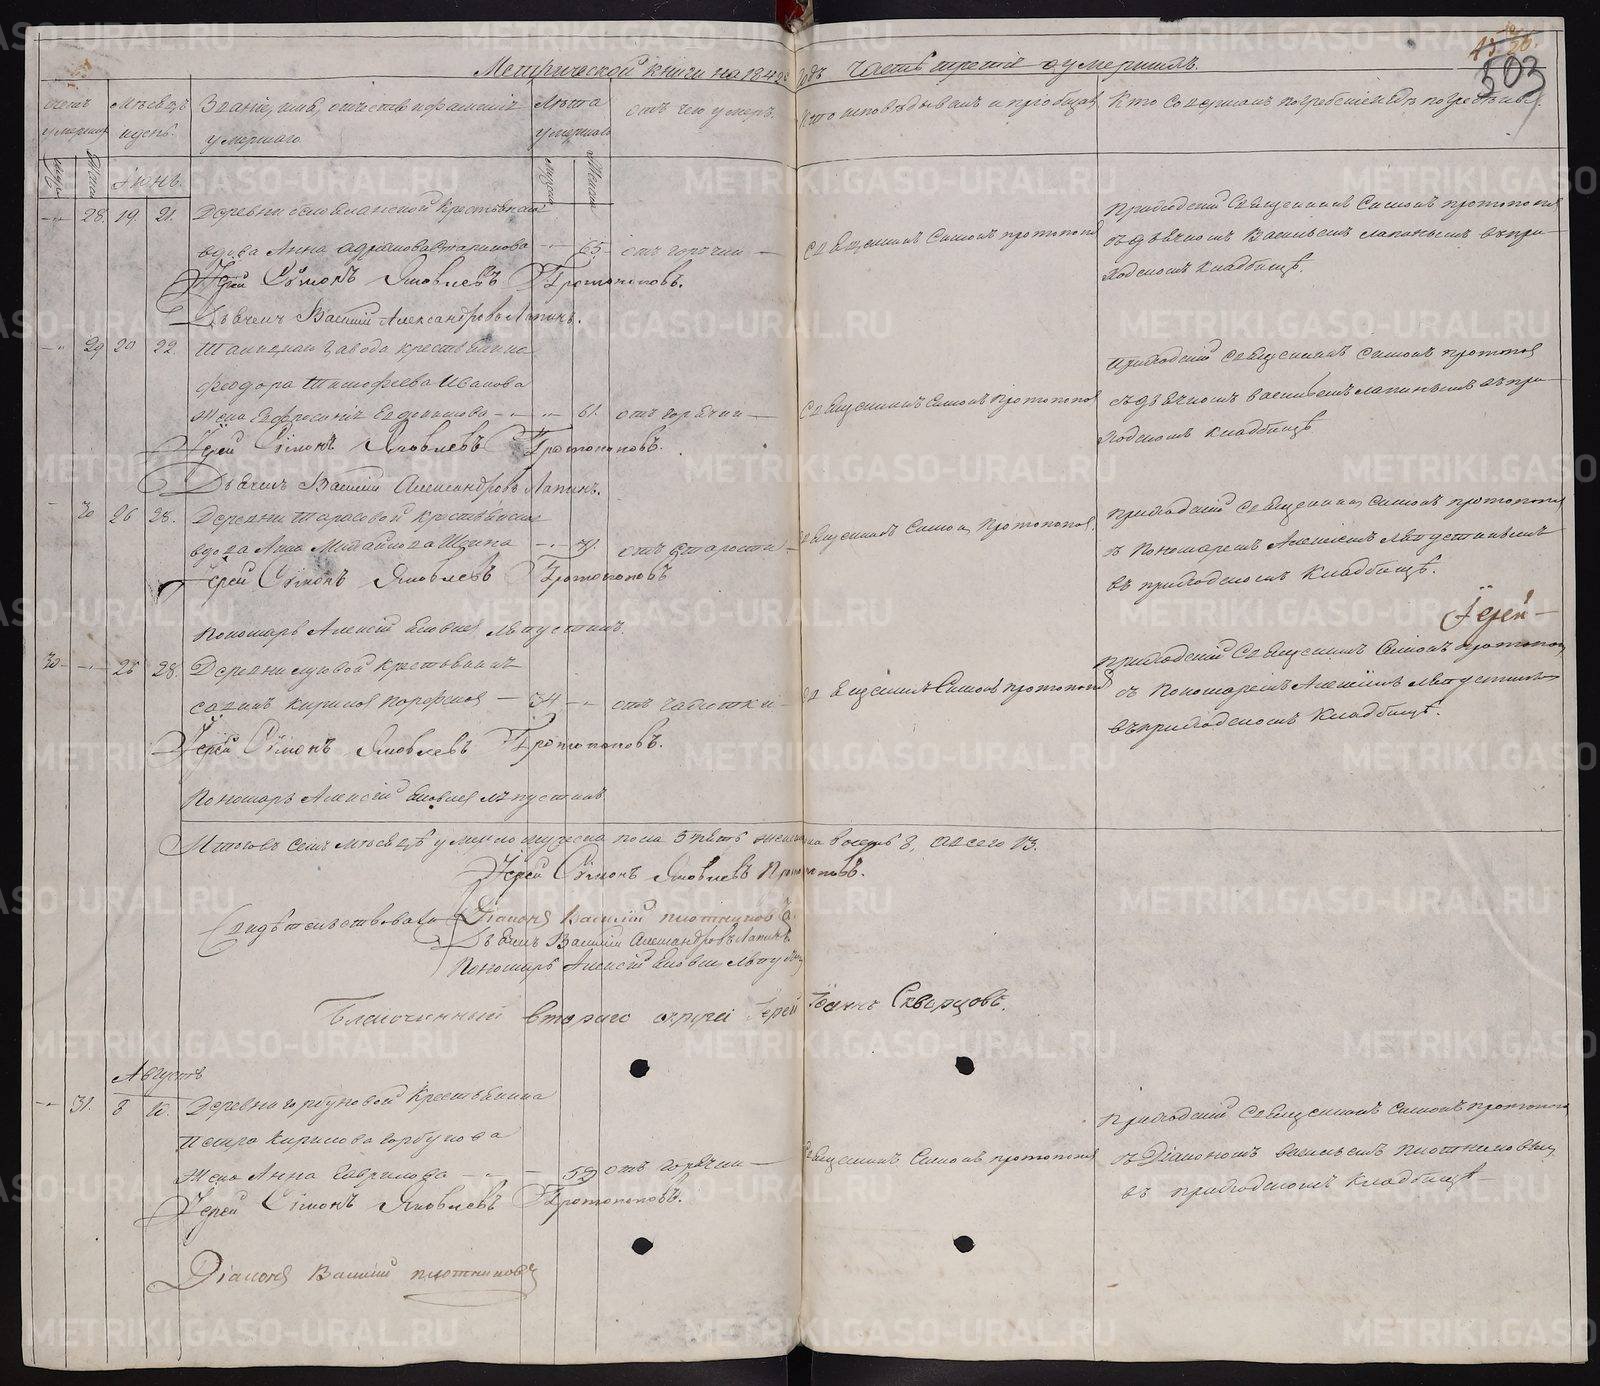 Метрической книги на 1840й годъ часть третія о умершихъ.
503
Счетъ умершихъ
Мѣсяцъ и день.
Званіе, имя, отчество и фамилія умершаго
Лѣта умершаго
отъ чего умеръ.
Кто исповѣдывалъ и пріобщалъ
Кто совершалъ погребеніе и гдѣ погребены.
Іюнь.
28. 19. 21. Деревни крестьянская
вдова Анна 65 отъ горячки
Священникъ Симонъ Протопоповъ
Приходскій Священникъ Симонъ Протопоповъ
съ дьячкомъ Васильемъ Лапинымъ въ при-
ходскомъ кладбищѣ.
Іерей Сімонъ Яковлевъ Протопоповъ.
Дьячекъ Василій Александровъ Лапинъ.
29 20 22. завода крестьянина
Феодора Тимофеева Иванова
жена Евфросинія Евдокимова 61. отъ горячки
Священникъ Симонъ Протопоповъ
Приходскій Священникъ Симонъ Протопоповъ
съ дьячкомъ Васильемъ Лапинымъ въ при-
ходскомъ кладбищѣ
Іерей Сімонъ Яковлевъ Протопоповъ.
Дьячекъ Василій Александровъ Лапинъ.
30 26 28. Деревни Тарасовой крестьянская
вдова Анна Михайлова отъ старости
Священникъ Симонъ Протопоповъ.
Приходскій Священникъ Симонъ Протопоповъ
съ Пономаремъ Алексѣемъ
въ приходскомъ кладбищѣ.
Іерей Сімонъ Яковлевъ Протопоповъ
Пономарь Алексій
Іерей
30 26 28. Деревни Луговой крестьянинъ
Кириловъ 34 отъ чахотки
Священникъ Симонъ Протопоповъ
Приходскій Священникъ Симонъ Протопоповъ
съ Пономаремъ Алексѣемъ
въ приходскомъ кладбищѣ.
Іерей Сімонъ Яковлевъ Протопоповъ.
Пономарь Алексій
Итого въ семъ мѣсяцѣ умерло мужеска пола 5 пять женска восемь 8, всего 13.
Іерей Сімонъ Яковлевъ Протопоповъ.
Свидѣтельствовали
Діаконъ Василій Плотниковъ.
Дьячекъ Василій Александровъ Лапинъ
Пономарь Алексій
Благочинный втораго округа Іерей Іоаннъ Скворцовъ.
Августъ
31. 8 10. Деревни Горбуновой крестьянина
Кирилова Горбунова
жена Анна Гаврилова 59 отъ горячки
Священникъ Симонъ Протопоповъ
Приходскій Священникъ Симонъ Протопоповъ
съ Діакономъ Васильемъ Плотниковымъ
въ приходскомъ кладбищѣ
Іерей Сімонъ Яковлевъ Протопоповъ.
Діаконъ Василій Плотниковъ
METRIKI.GASO-URAL.RU